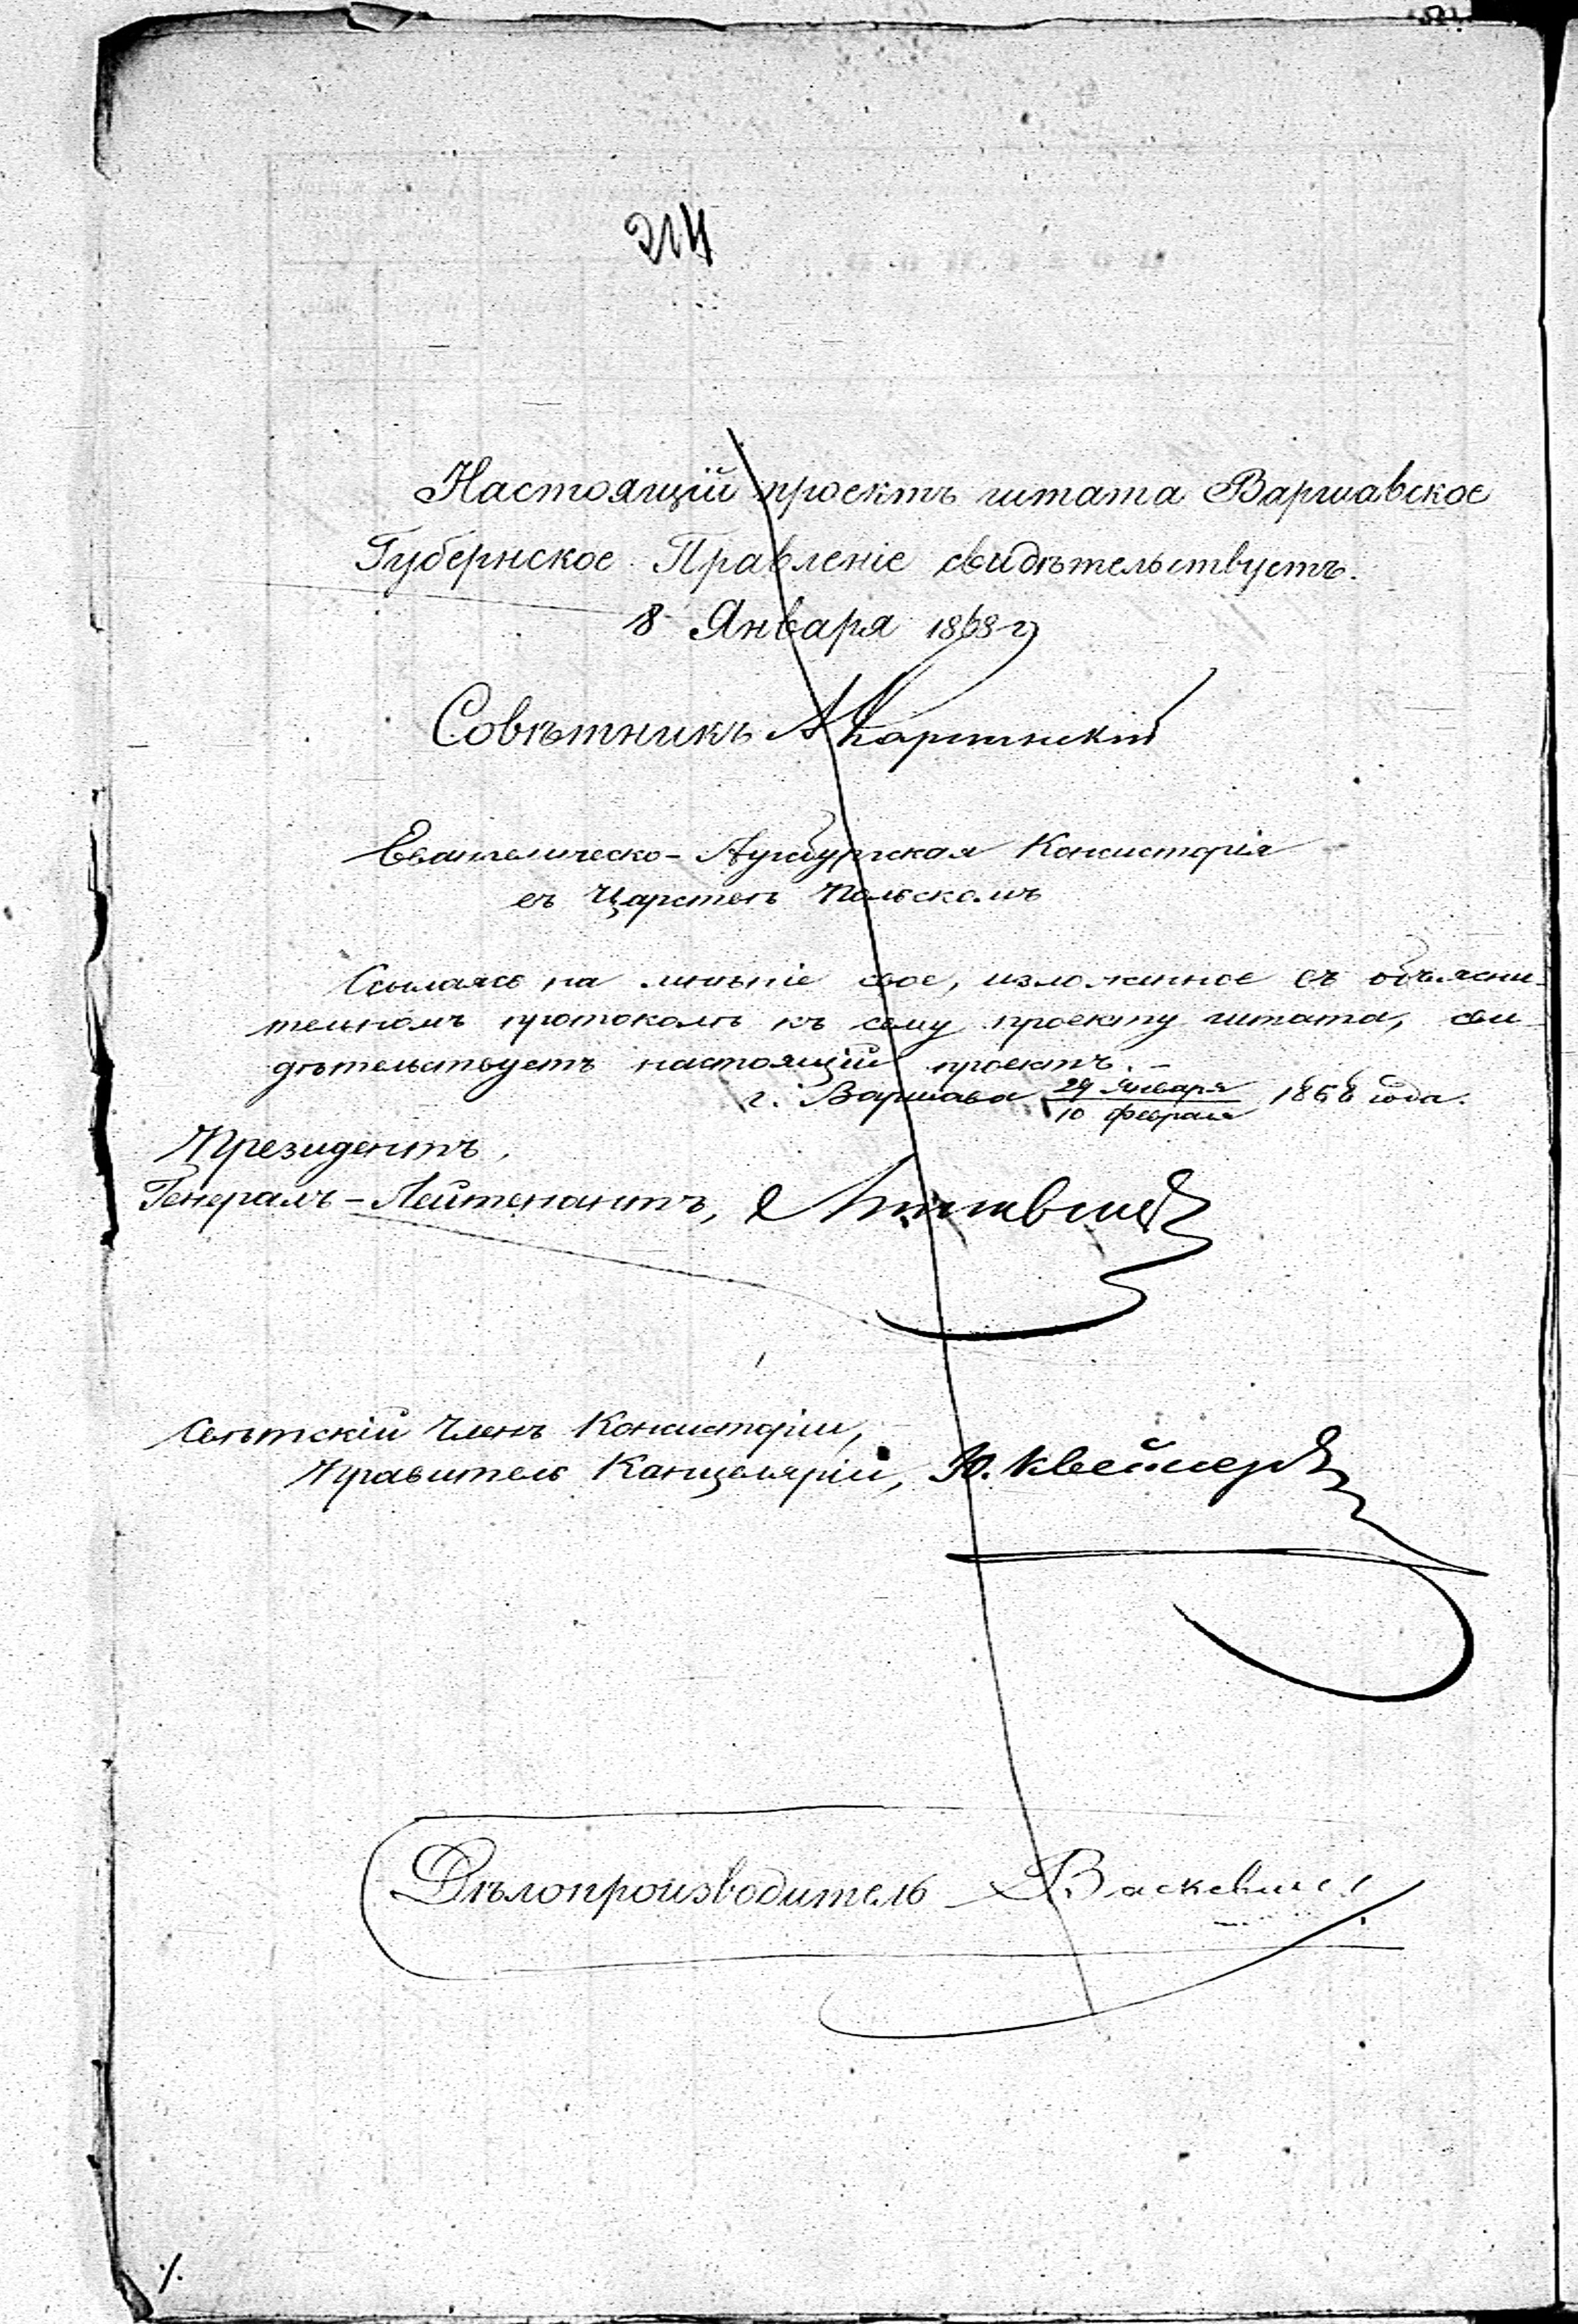 214
Настоящій проектъ штата Варшавское
Губернское Правленіе свидѣтельствуетъ.
8 Января 1868 г
Совѣтникъ
Евангелическо-Аугсбургская Консисторія
въ Царствѣ Польскомъ
Ссылаясь на мнѣніе свое, изложенное въ объясни-
тельномъ протоколѣ къ сему проекту штата, сви-
дѣтельствуетъ настоящій проектъ.-
г. Варшава 29 Января / 10 Февраля 1868 года.
Президентъ,
Генералъ-Лейтенантъ,
Свѣтскій Членъ Консисторіи,
Правитель Канцеляріи, Ю.
Дѣлопроизводитель